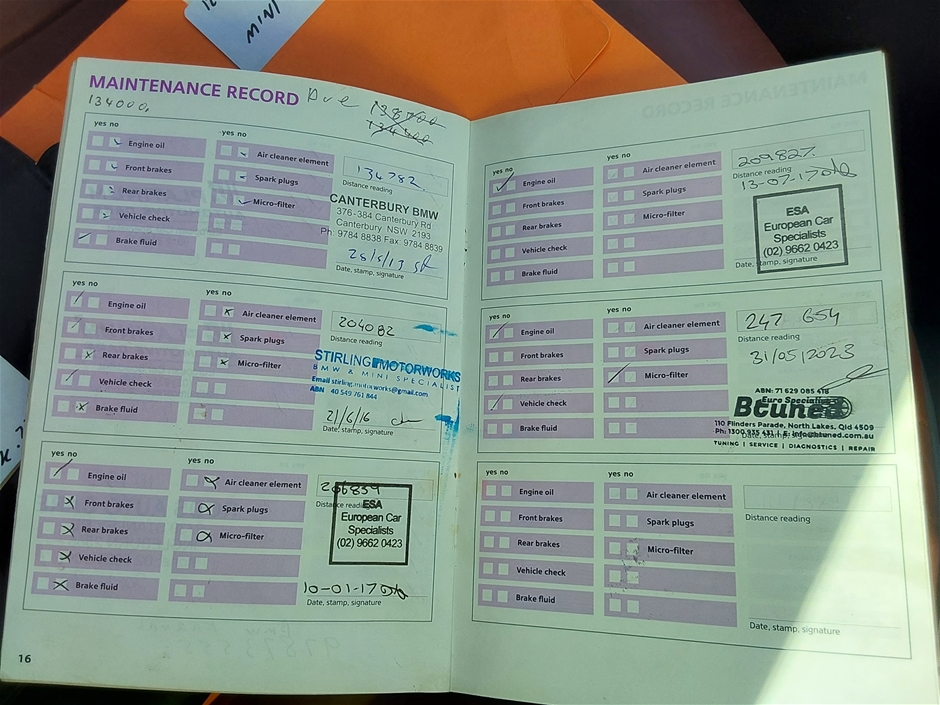 MINI
MAINTENANCE RECORD Due 138000
134000. 134000
yes no
yes no
Engine oil
Front brakes
Rear brakes
Vehicle check
Brake fluid
Air cleaner element
Spark plugs
Micro-filter
134782.
Distance reading
CANTERBURY BMW
376-384 Canterbury Rd
Canterbury NSW 2193
Ph: 9784 8838 Fax: 9784 8839
Date, stamp, signature
yes no
yes no
Engine oil
Front brakes
Rear brakes
Vehicle check
Brake fluid
Air cleaner element
Spark plugs
Micro-filter
204082
Distance reading
STIRLING MOTORWORKS
BMW & MINI SPECIALIST
Email stirling.motorworks@gmail.com
ABN 40 549 761 844
21/6/16
Date, stamp, signature
yes no
yes no
Engine oil
Front brakes
Rear brakes
Vehicle check
Brake fluid
Air cleaner element
Spark plugs
Micro-filter
206839
Distance reading
ESA
European Car
Specialists
(02) 9662 0423
10-01-17
Date, stamp, signature
16
yes no
yes no
Engine oil
Front brakes
Rear brakes
Vehicle check
Brake fluid
Air cleaner element
Spark plugs
Micro-filter
209827.
Distance reading
13-07-17
ESA
European Car
Specialists
(02) 9662 0423
Date, stamp, signature
yes no
yes no
Engine oil
Front brakes
Rear brakes
Vehicle check
Brake fluid
Air cleaner element
Spark plugs
Micro-filter
247 654
Distance reading
31/05/2023
ABN: 71 629 085 418
Euro Specialist
Btuned
110 Flinders Parade, North Lakes, Qld 4509
Ph: 1300 935 431 | E: info@btuned.com.au
Date, stamp, signature
TUNING | SERVICE | DIAGNOSTICS | REPAIR
yes no
yes no
Engine oil
Front brakes
Rear brakes
Vehicle check
Brake fluid
Air cleaner element
Spark plugs
Micro-filter
Distance reading
Date, stamp, signature